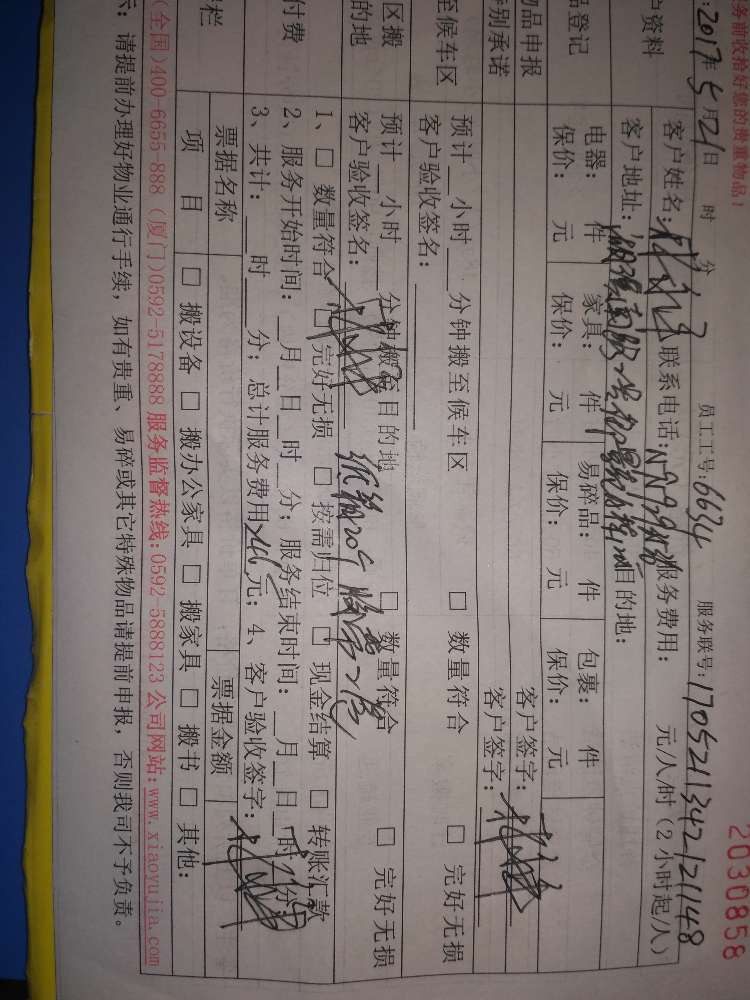 务前收拾好您的贵重物品！
2030858
:2017年5月21日 时 分 员工工号:6634 服务联号:1705211342121148
户资料
客户姓名: 联系电话: 服务费用: 元/人/时（2小时起/人）
客户地址: 目的地:
品登记
电器: 件 家具: 件 易碎品: 件 包裹: 件
保价: 元 保价: 元 保价: 元 保价: 元
物品申报 客户签字:
特别承诺 客户签字:
至候车区
预计__小时___分钟搬至候车区 □ 数量符合 □ 完好无损
客户验收签名:
区搬
的地
预计__小时___分钟搬至目的地 □ 数量符合 □ 完好无损
客户验收签名: 纸箱20个
付费
1、□ 数量符合 □ 完好无损 □ 按需归位 □ 现金结算 □ 转账汇款
2、服务开始时间:__月__日__时__分; 服务结束时间:__月__日__时__分;
3、共计:___时___分; 总计服务费用 元; 4、客户验收签字:
栏
票据名称 票据金额
项 目 □ 搬设备 □ 搬办公家具 □ 搬家具 □ 搬书 □ 其他:
(全国)400-6655-888 (厦门)0592-5178888 服务监督热线:0592-5888123 公司网站:www.xiaoyujia.com
示: 请提前办理好物业通行手续, 如有贵重、易碎或其它特殊物品请提前申报, 否则我司不予负责。